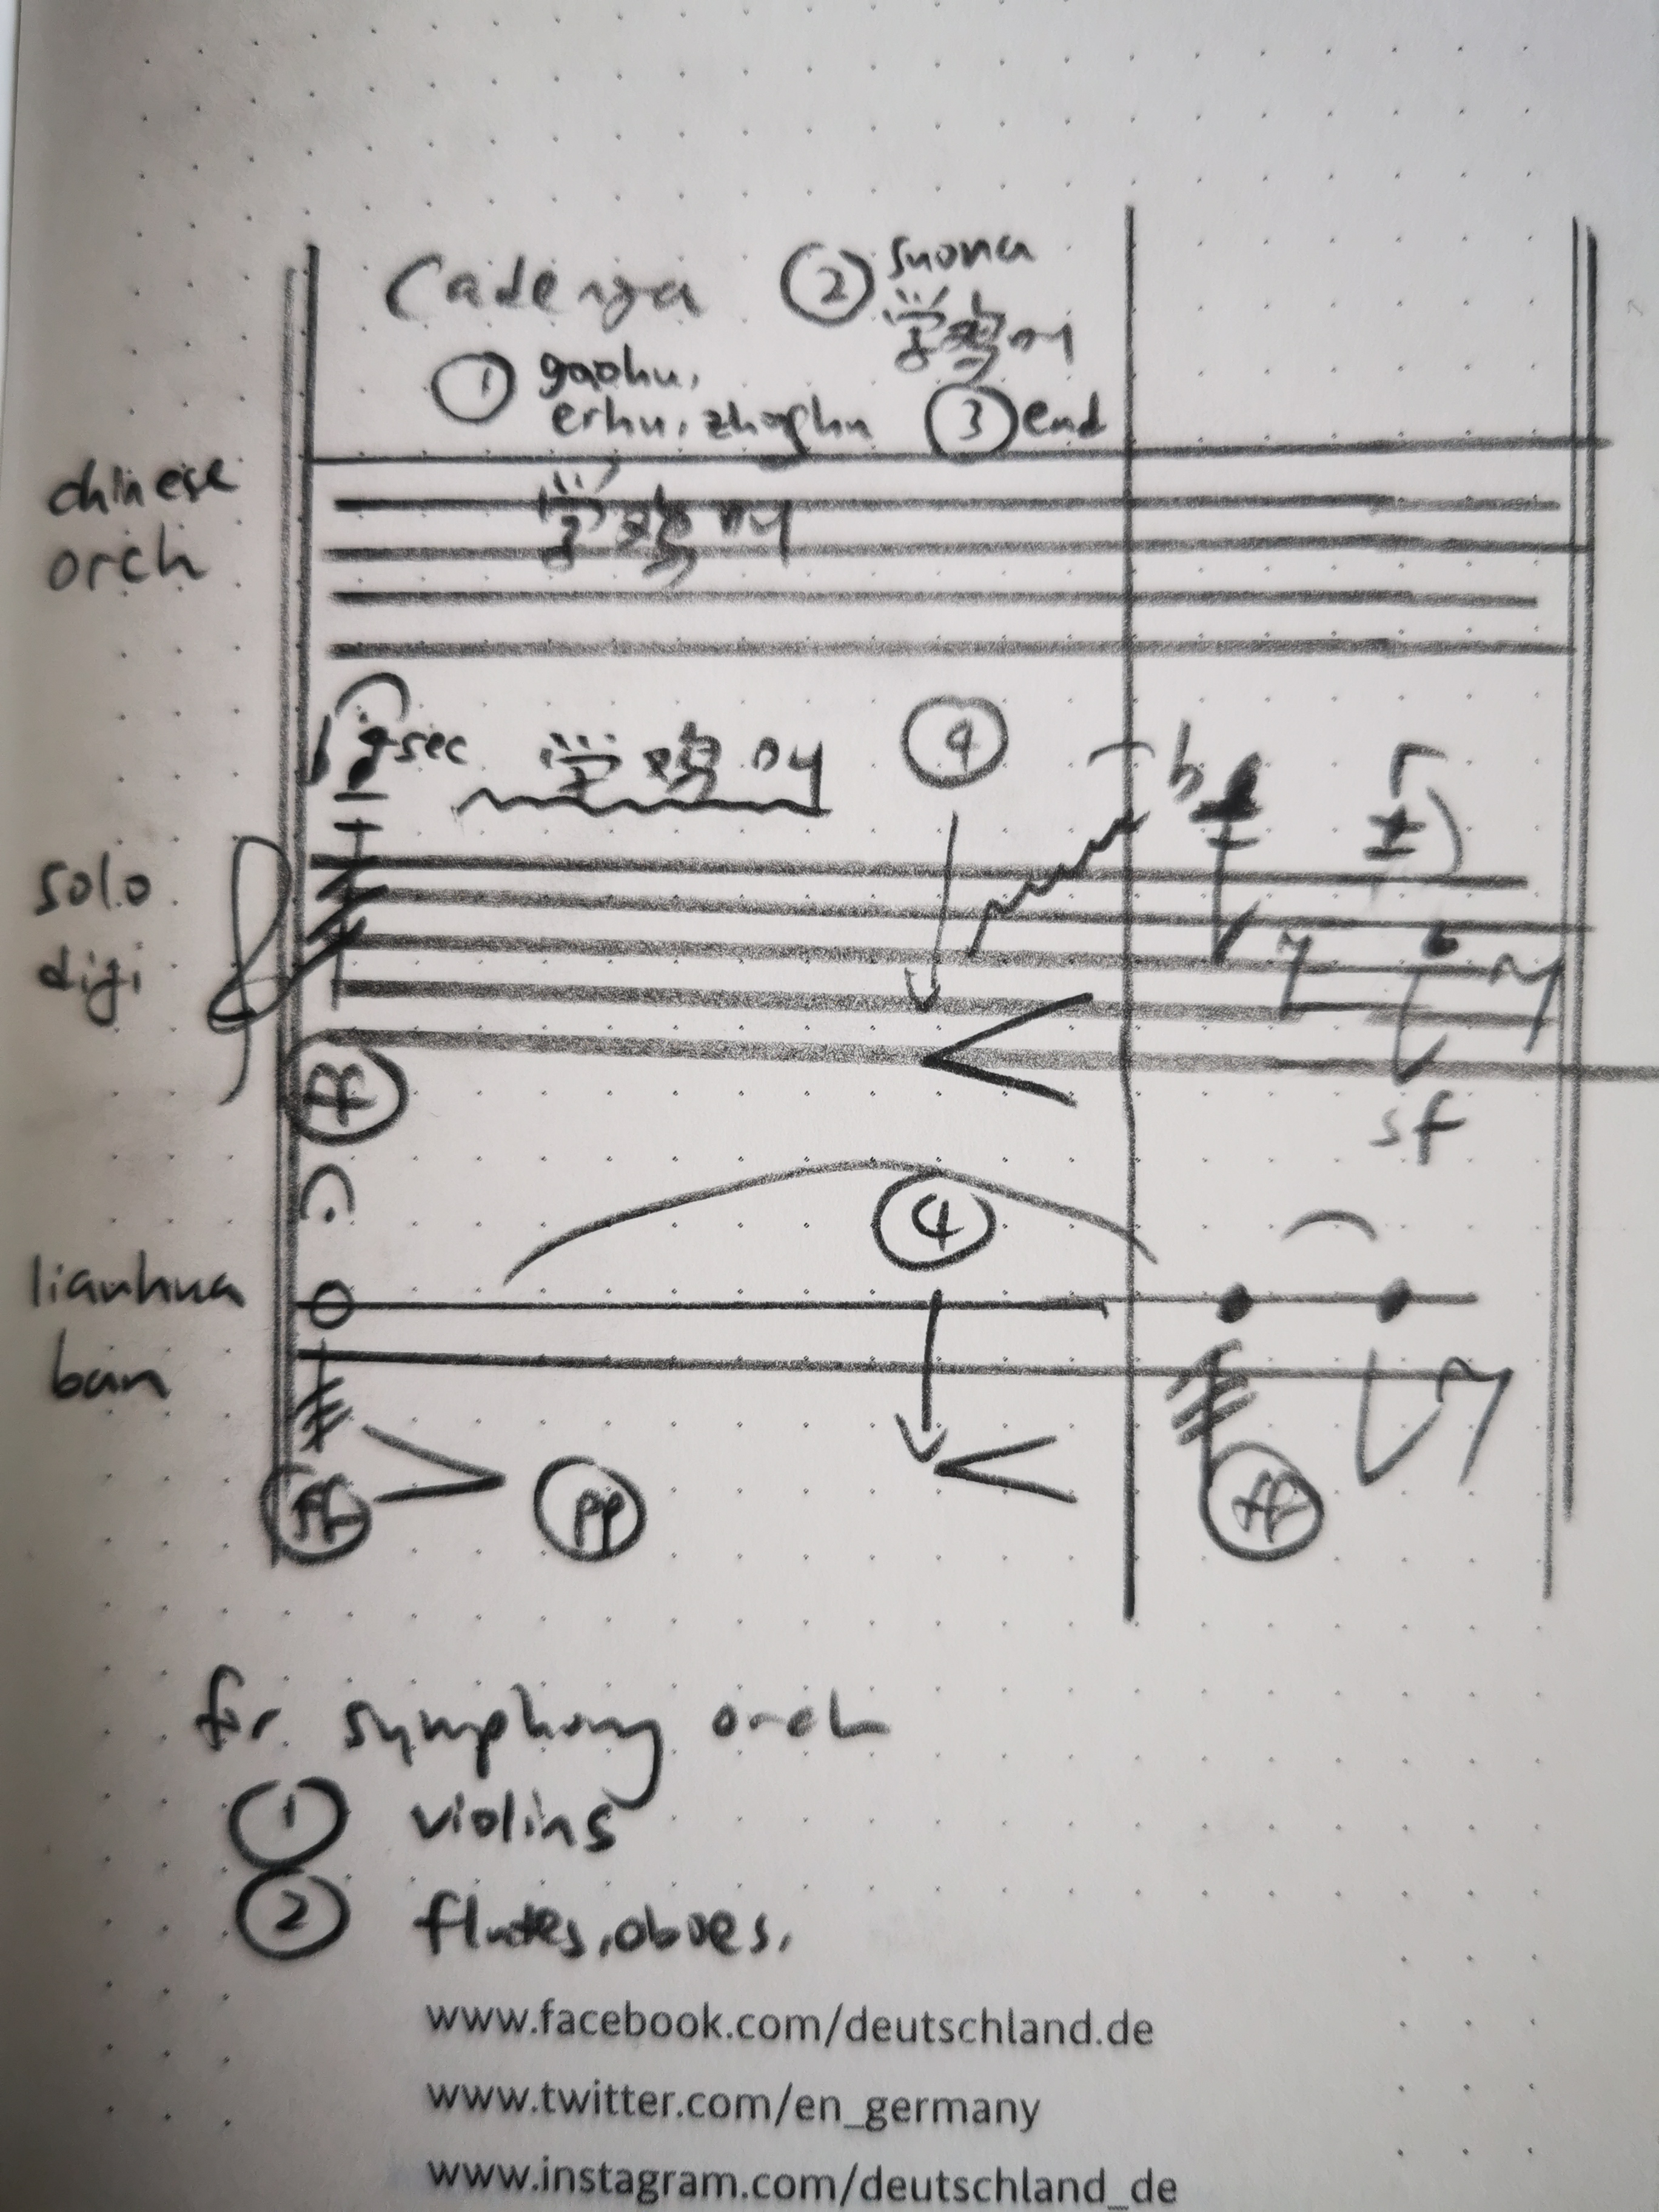 Cadenza ② suona
学鸡叫
① gaohu,
erhu, zhonghu ③ end
chinese
orch
学鸡叫
sec 学鸡叫 ④
solo
dizi
ff
sf
④
lianhua
ban
ff pp ff
for symphony orch
① violins
② flutes, oboes,
www.facebook.com/deutschland.de
www.twitter.com/en_germany
www.instagram.com/deutschland_de